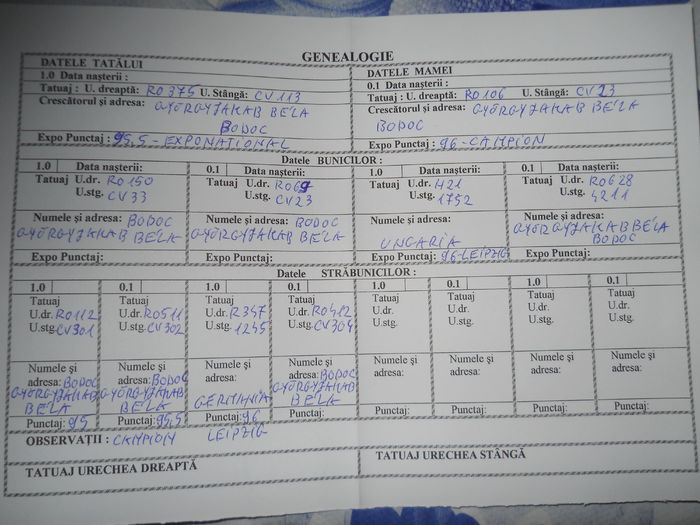 GENEALOGIE
DATELE TATĂLUI
1.0 Data nașterii:
Tatuaj : U. dreaptă: RO 375 U. Stângă: CV 113
Crescătorul și adresa: GYÖRGYJAKAB BÉLA
BODOC
Expo Punctaj : 95,5 - EXPONAȚIONAL
DATELE MAMEI
0.1 Data nașterii:
Tatuaj : U. dreaptă: RO 106 U. Stângă: CV 23
Crescătorul si adresa: GYÖRGYJAKAB BÉLA
BODOC
Expo Punctaj : 96 - CAMPION
Datele BUNICILOR :
1.0 Data nașterii:
Tatuaj U.dr. RO 150
U.stg. CV 33
Numele și adresa: BODOC
GYÖRGYJAKAB BÉLA
Expo Punctaj:
0.1 Data nașterii:
Tatuaj U.dr.
U.stg. CV 23
Numele și adresa: BODOC
GYÖRGYJAKAB BÉLA
Expo Punctaj:
1.0 Data nașterii:
Tatuaj U.dr. 421
U.stg. 1752
Numele și adresa:
UNGARIA
Expo Punctaj: 96-LEIPZIG
0.1 Data nașterii:
Tatuaj U.dr. RO 628
U.stg. 4211
Numele și adresa:
GYÖRGYJAKAB BÉLA
BODOC
Expo Punctaj:
Datele STRĂBUNICILOR :
1.0
Tatuaj
U.dr. RO 112
U.stg. CV 301
Numele și
adresa: BODOC
GYÖRGYJAKAB
BÉLA
Punctaj: 95
0.1
Tatuaj
U.dr. RO 511
U.stg. CV 302
Numele și
adresa: BODOC
GYÖRGYJAKAB
BÉLA
Punctaj: 95,5
1.0
Tatuaj
U.dr. R 347
U.stg. 1245
Numele și
adresa:
GERMANIA
Punctaj: 96
LEIPZIG
0.1
Tatuaj
U.dr. RO 412
U.stg. CV 304
Numele și
adresa: BODOC
GYÖRGYJAKAB
BÉLA
Punctaj:
1.0
Tatuaj
U.dr.
U.stg.
Numele și
adresa:
Punctaj:
0.1
Tatuaj
U.dr.
U.stg.
Numele și
adresa:
Punctaj:
1.0
Tatuaj
U.dr.
U.stg.
Numele și
adresa:
Punctaj:
0.1
Tatuaj
U.dr.
U.stg.
Numele și
adresa:
Punctaj:
OBSERVAȚII : CAMPION
TATUAJ URECHEA DREAPTĂ
TATUAJ URECHEA STÂNGĂ